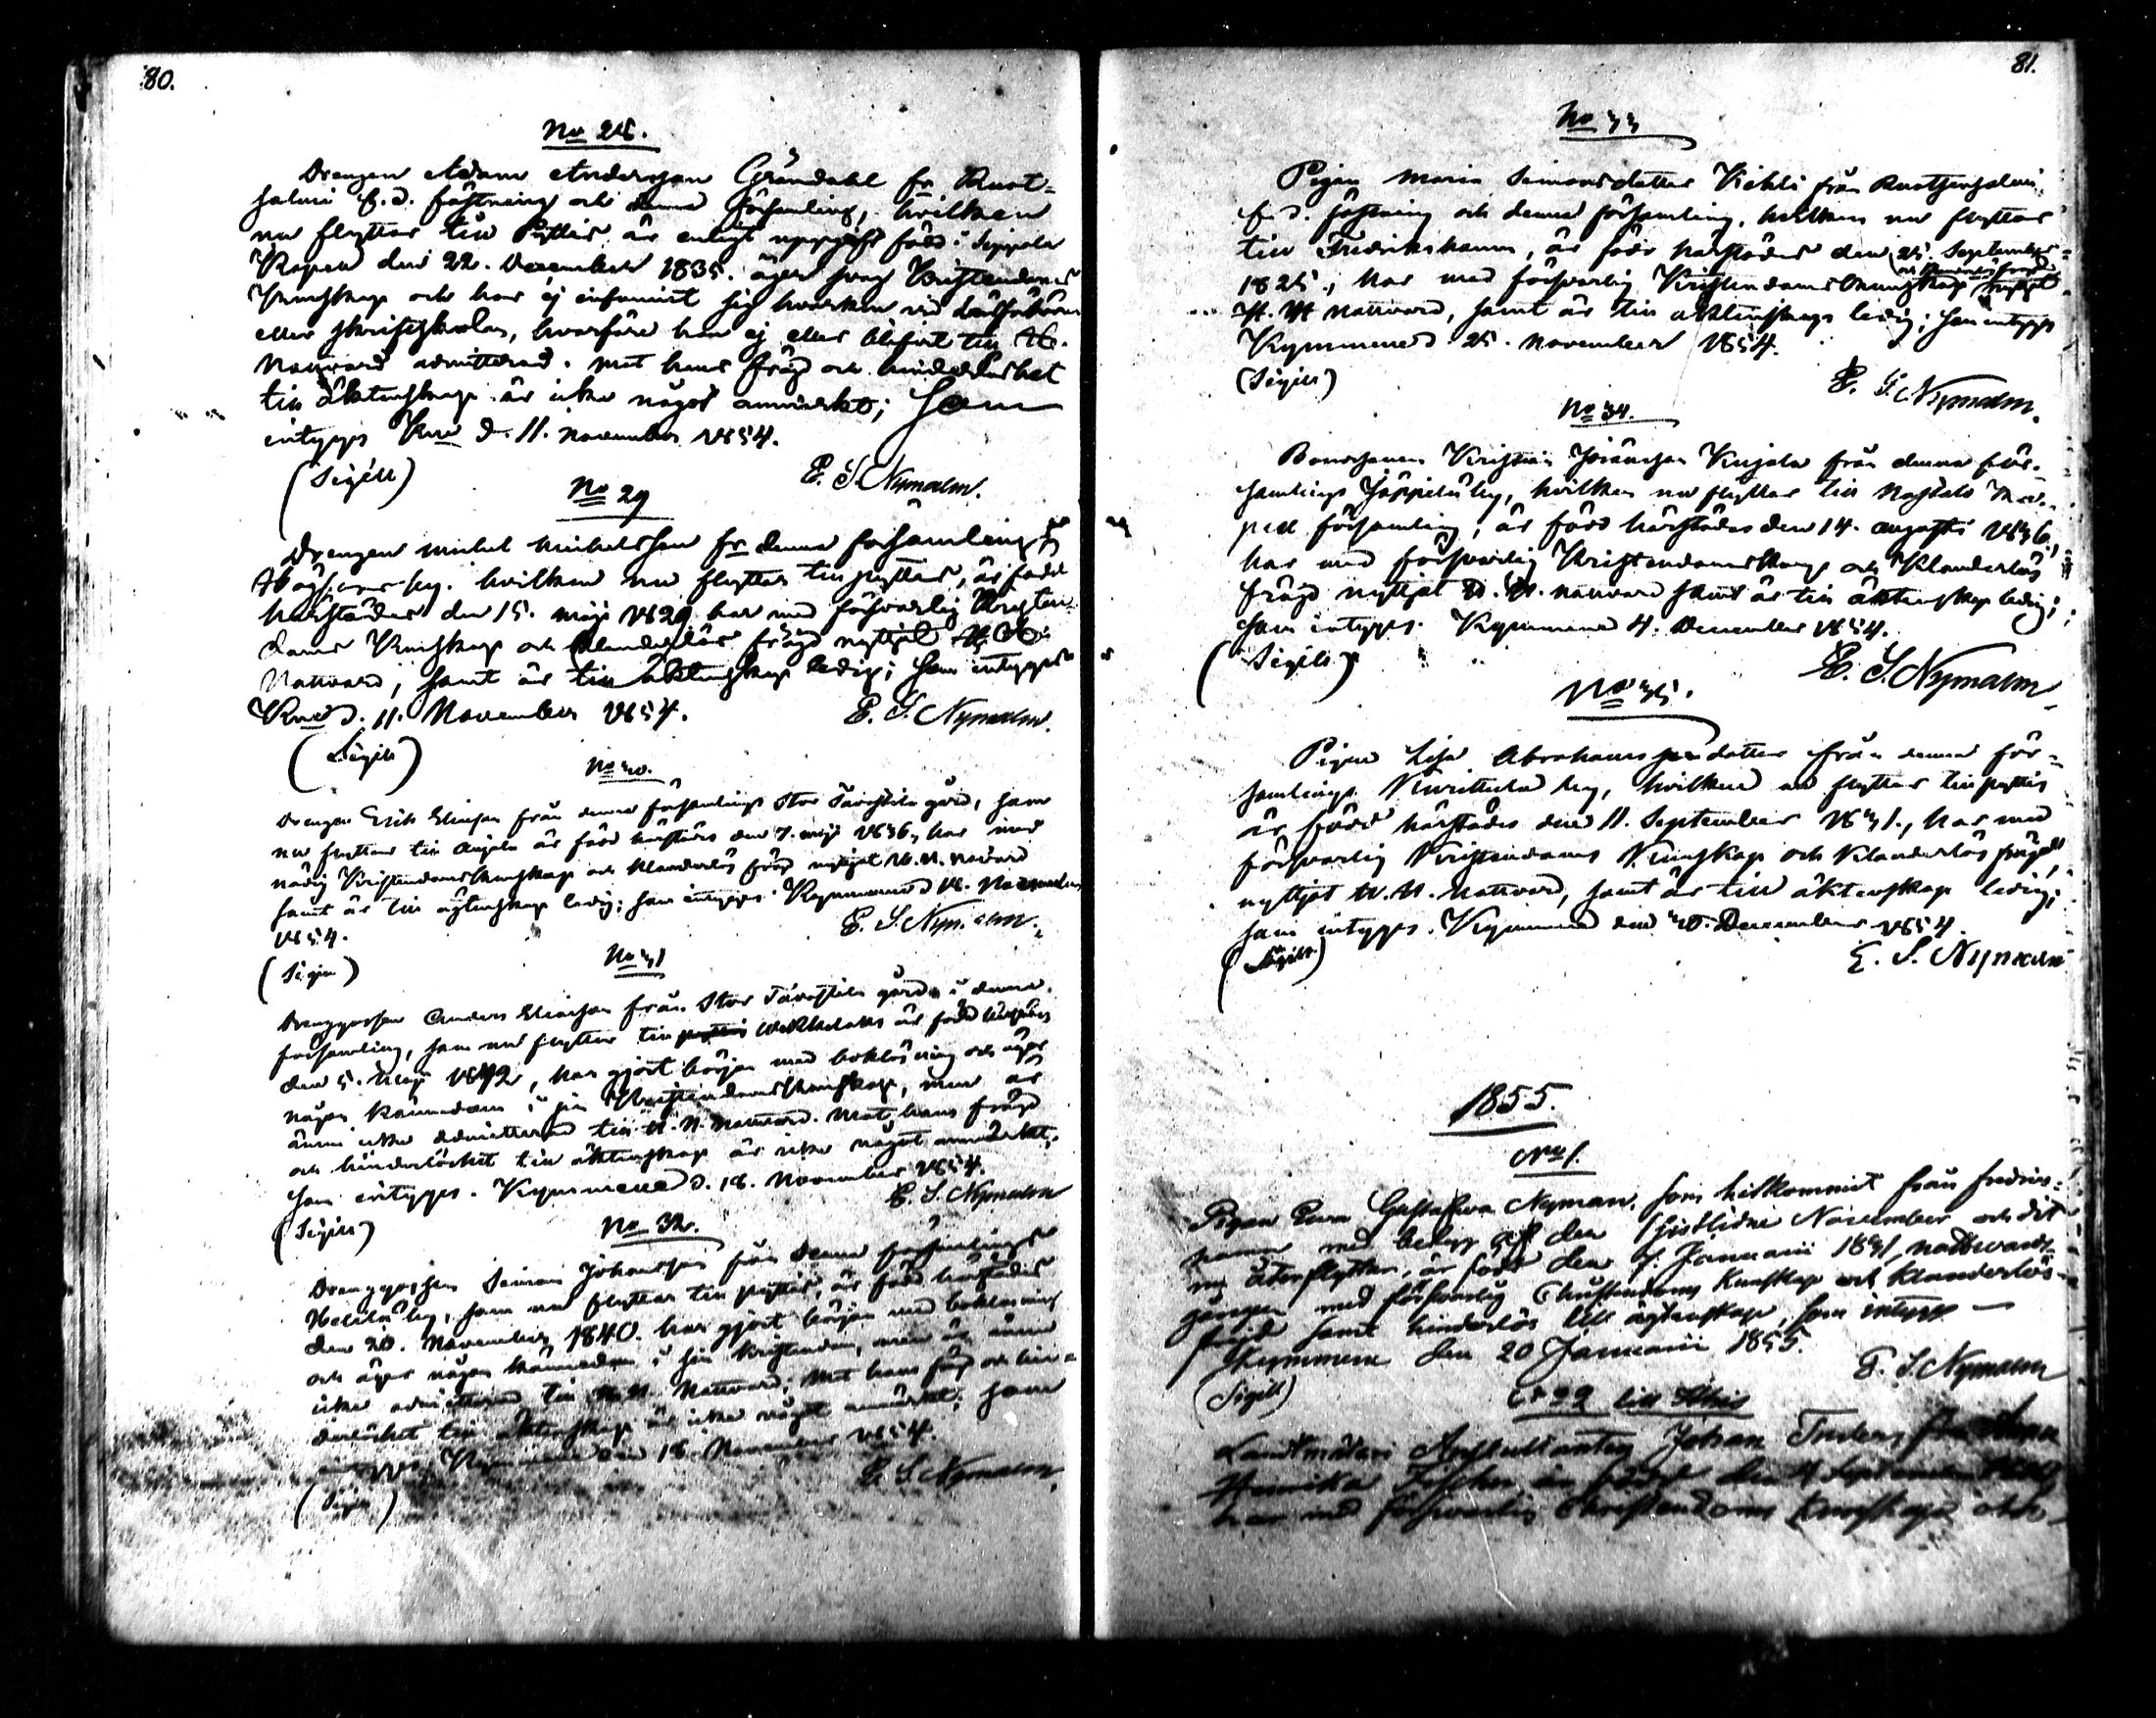 80.
No 28.
Drengen Adam Andersson Gröndahl fr Ruot=
salmi f.d. fästning och denna församling, hvilken
nu flyttar till Pyttis är enligt uppgift född i Sippola
Kapell den 22. December 1835. äger svag Kristendoms
kunskap och har ej infunnit sig hvarken vid Läsförhören
eller skriftskolan, hvarföre han ej eller blifvit till H.
Nattvard admitterad. Mot hans frägd och hinderlöshet
till äktenskap är icke något anmärkt; som
intygas Kne d. 11. November 1854.
(Sigill) E. S. Nymalm.
No 29
Drengen Michel Michelsson fr denna församlings
by. hvilken nu flyttar till Pyttis, är född
härstädes den 15. Maji 1829 har med försvarlig Kristen
doms Kunskap och klanderlös frägd nyttjat H. H.
Nattvard, samt är till äktenskap ledig; som intygas
Kne d. 11. November 1854. E. S. Nymalm.
(Sigill)
No 30.
Drengen Erik Eliasson från denna församlings Stor Tavastila gård, som
nu flyttar till Anjala är född härstädes den 7. Maji 1836, har med
nödig Kristendomskunskap och klanderlös frägd nyttjat H. H. Nattvard
samt är till äktenskap ledig; som intygas. Kymmene d 18. November
1854. E. S. Nymalm.
(Sigill)
No 31
Drenggossen Anders Eliasson från Stor Tavastila gård i denna
församling, som nu flyttar till är född härstädes
den 5. Maji 1842, har gjort början med bokläsning och äger
någon kännedom i sin Kristendomskunskap, men är
ännu icke admitterad till H. H. Nattvard. Mot hans frägd
och hinderlöshet till äktenskap är icke något anmärkt,
som intygas. Kymmene d. 18. November 1854.
(Sigill) E. S. Nymalm
No 32.
Drenggossen Simon Johansson från denna församlings
by, som nu flyttar till Pyttis, är född härstädes
den 20. November 1840. har gjort början med bokläsning
och äger någon kännedom i sin Kristendom, men är ännu
icke admitterad till H. H. Nattvard; Mot hans frägd och hin=
derlöshet till äktenskap är icke något anmärkt; som
intygas Kymmene den 18. November 1854.
(Sigill) E. S. Nymalm
81.
No 33
Pigan Maria Simonsdotter Vickli från Ruotsensalmi
f.d. fästning och denna församling, hvilken nu flyttar
till Fredrikshamn, är född härstädes den 25. September
och klanderlös frägd
1825, har med försvarlig Kristendomskunskap nyttjat
H. H Nattvard, samt är till äktenskap ledig; som intygas
Kymmene d 25. November 1854.
(Sigill) E. S. Nymalm.
No 34.
Bondsonen Kristian Jöransson Kujala från denna för.
samlings Jäppilä by, hvilken nu flyttar till
pell församling, är född härstädes den 14. Augusti 1836,
har med försvarlig Kristendomskunskap och klanderlös
frägd nyttjat H. H. Nattvard samt är till äktenskap ledig;
som intygas. Kymmene d 4. December 1854.
(Sigill) E. S. Nymalm
No 35.
Pigan Lisa Abrahamsdotter från denna för=
samlings by, hvilken nu flyttar till Pyttis
är född härstädes den 11. September 1831., har med
försvarlig Kristendoms Kunskap och klanderlös frägd
nyttjat H. H. Nattvard, samt är till äktenskap ledig;
som intygas. Kymmene den 30. December 1854.
(Sigill) E. S. Nymalm
1855.
No 1.
Pigan Eva Gustafva Nyman, som hitkommit från Fredriks=
hamn med betyg af den sistlidne November och dit
nu återflyttar, är född den 7. Januarii 1831, nattvards-
gången med försvarlig Christendoms kunskap och klanderlös
frägd samt hinderlös till äktenskap, som intygas
Kymmene den 20 Januarii 1855.
(Sigill) E. S. Nymalm
No 2 till
Landtmäteri Auscultanten Johan
är född den September
har med försvarlig Christendoms kunskap och